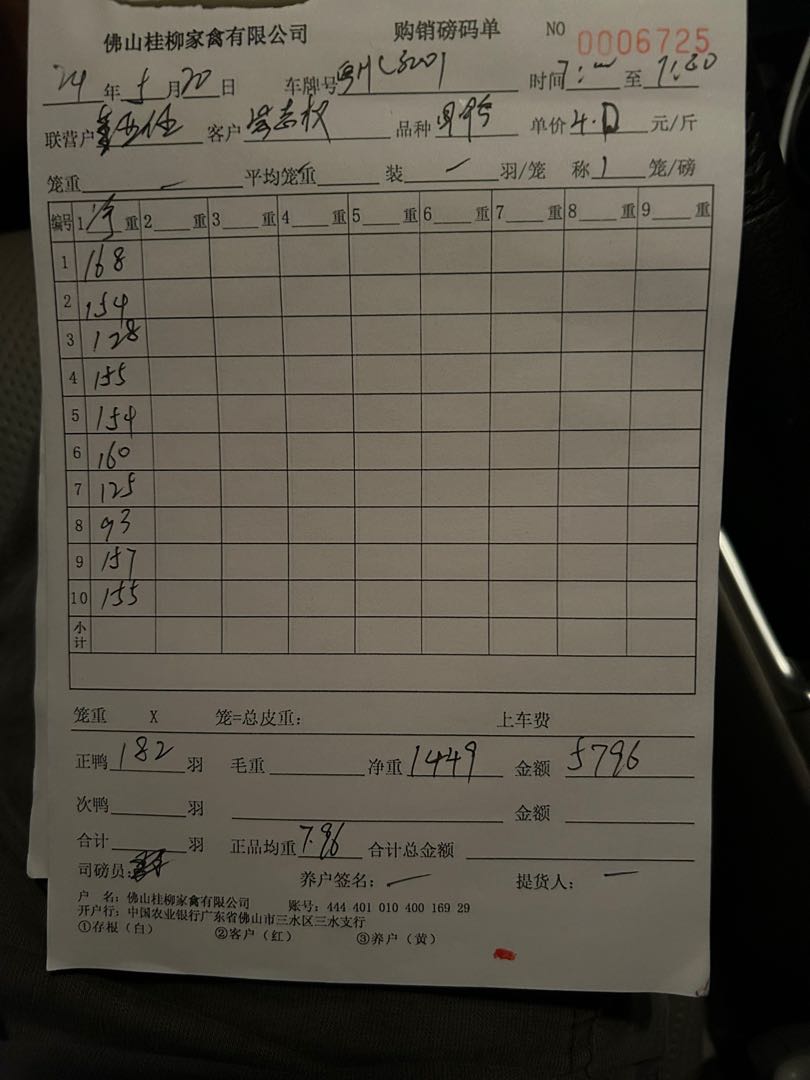 佛山桂柳家禽有限公司 购销磅码单 NO 0006725
24年5月20日 车牌号 时间7: 至7:30
联营户 客户 品种 单价4.0元/斤
笼重 — 平均笼重 装 — 羽/笼 称1笼/磅
编号 1净重 2 重 3 重 4 重 5 重 6 重 7 重 8 重 9 重
1 168
2 154
3 128
4 155
5 154
6 160
7 125
8 93
9 157
10 155
小计
笼重 X 笼=总皮重: 上车费
正鸭182羽 毛重 净重1449 金额5796
次鸭 羽 金额
合计 羽 正品均重7.96 合计总金额
司磅员: 养户签名: — 提货人: —
户 名: 佛山桂柳家禽有限公司 账号: 444 401 010 400 169 29
开户行: 中国农业银行广东省佛山市三水区三水支行
①存根(白) ②客户(红) ③养户(黄)